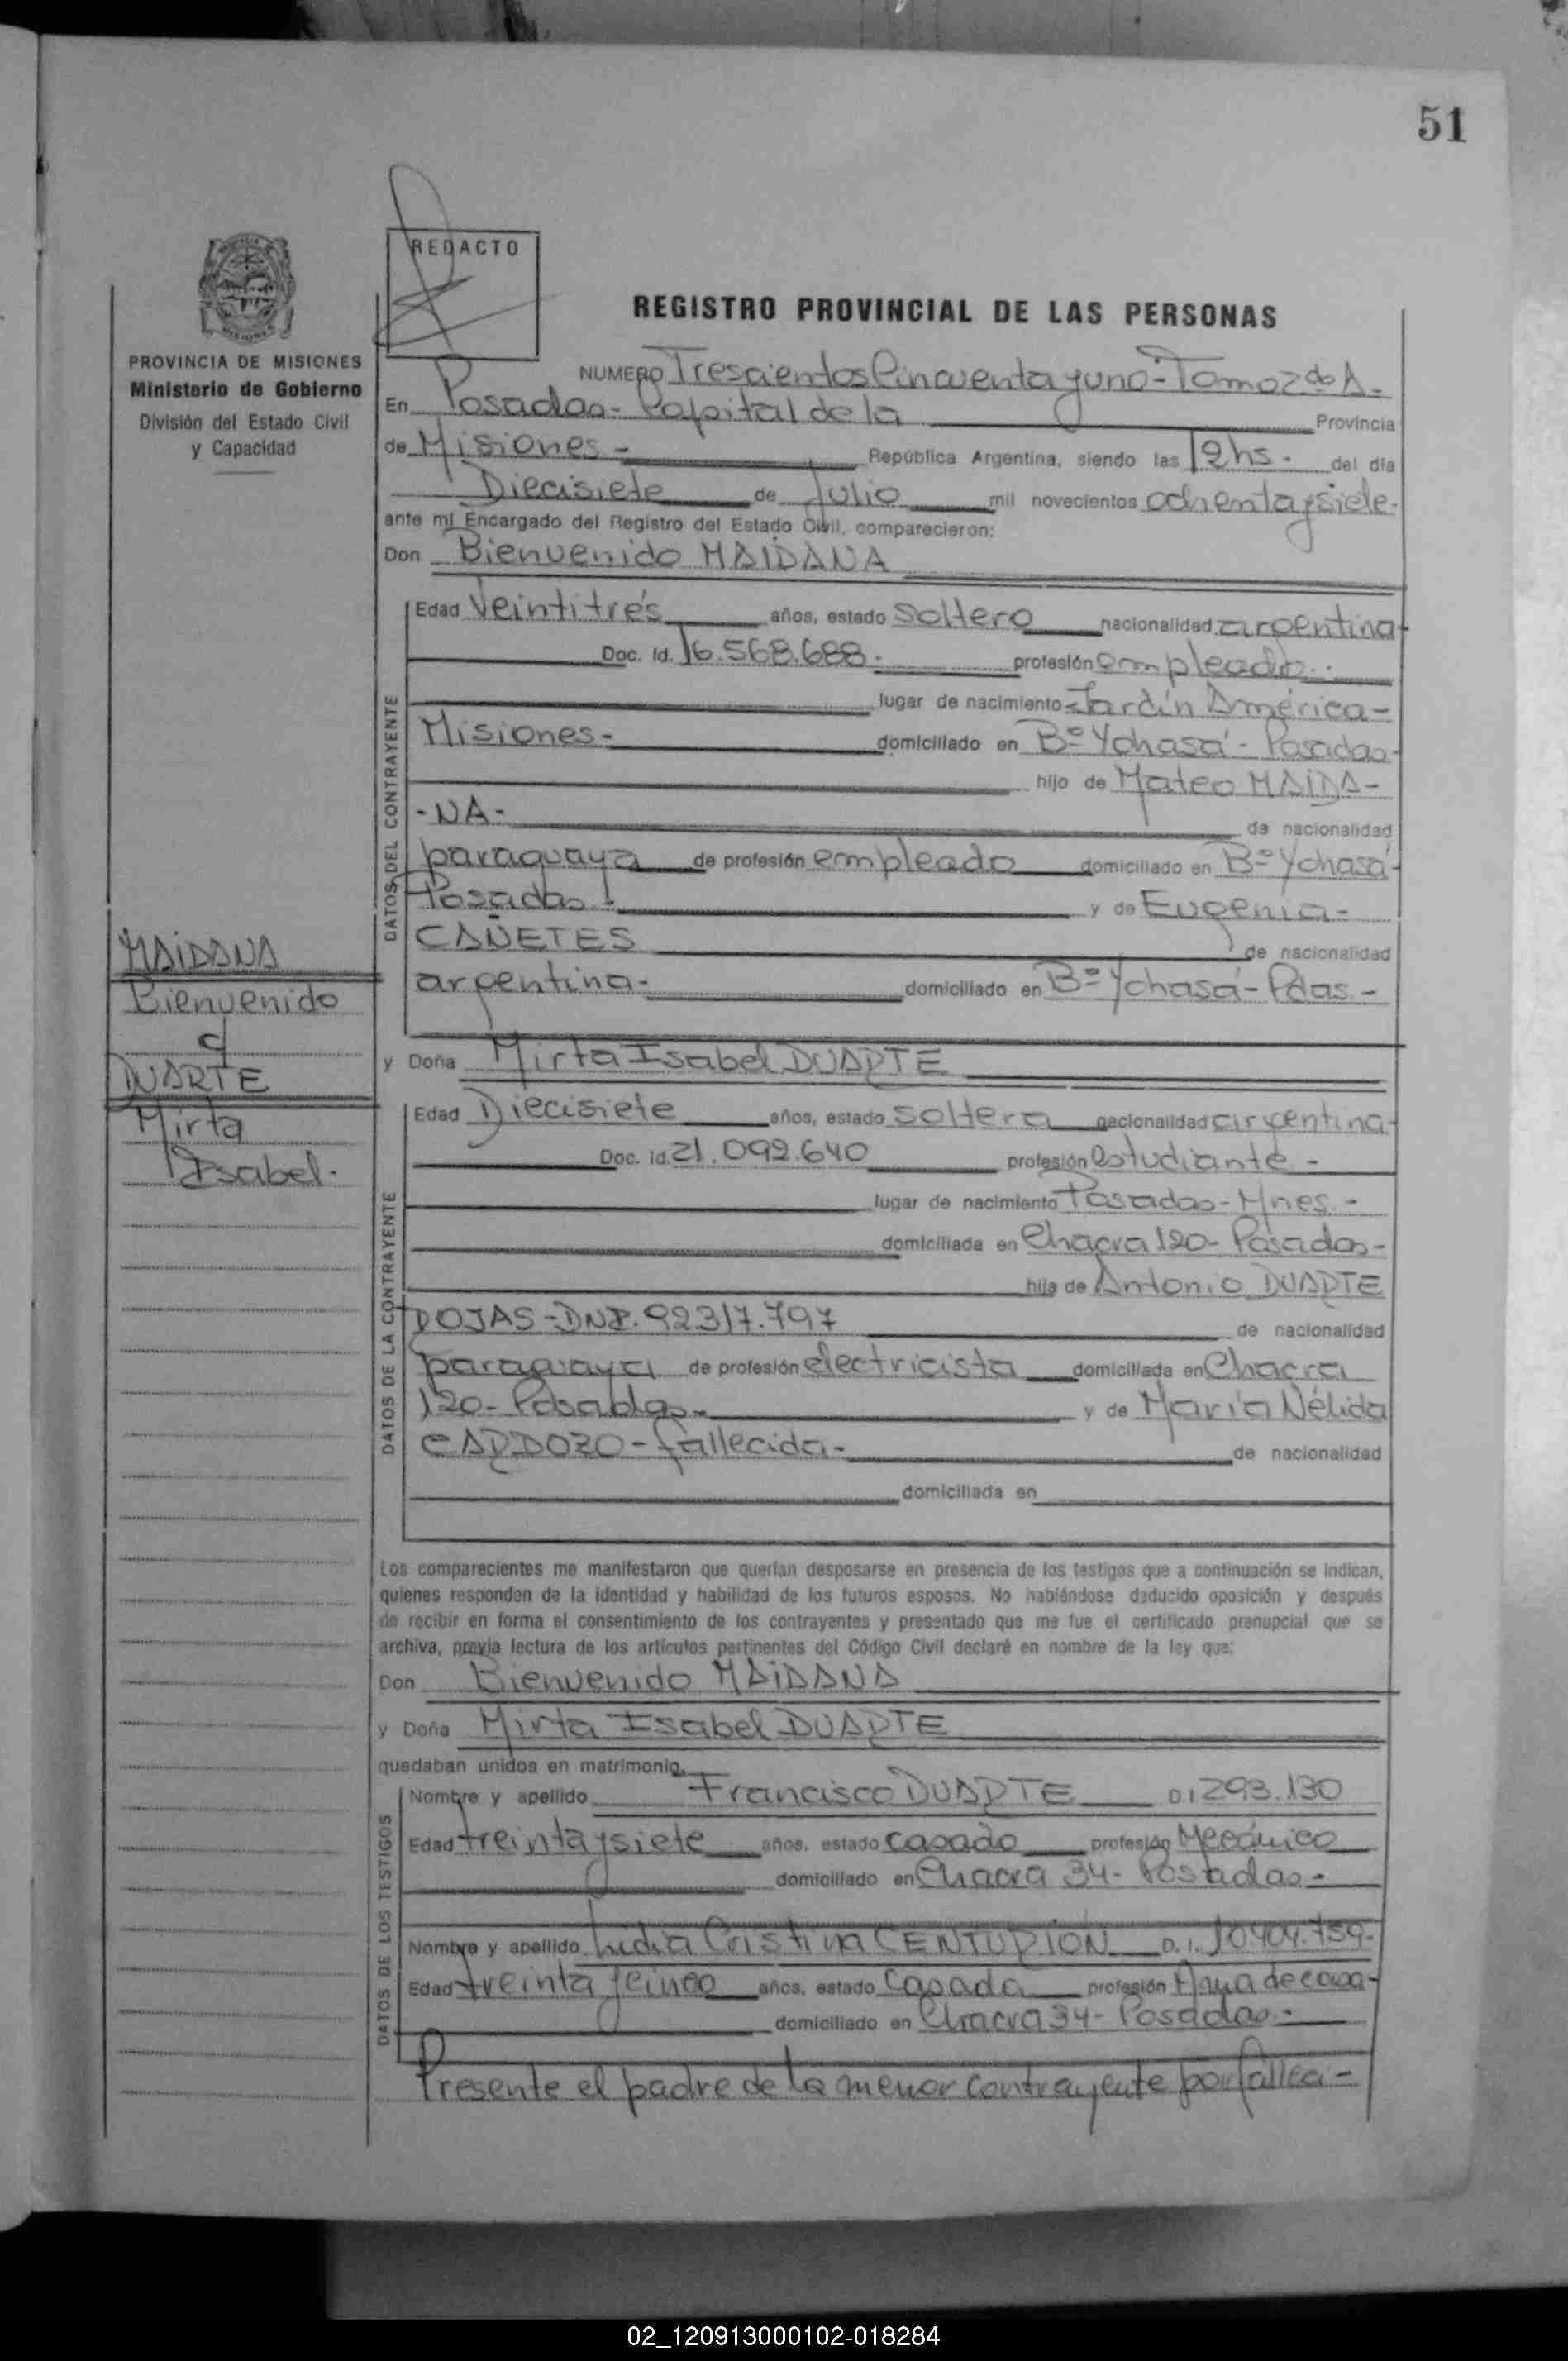 51
REDACTO
PROVINCIA DE MISIONES
Ministerio de Gobierno
División del Estado Civil
y Capacidad
REGISTRO PROVINCIAL DE LAS PERSONAS
NUMERO Trescientos Cincuenta y uno - Tomo 2do A.-
En Posadas - Capital de la Provincia
de Misiones - República Argentina, siendo las 12hs. del día
Diecisiete de Julio mil novecientos ochenta y siete.
ante mi Encargado del Registro del Estado Civil, comparecieron:
Don Bienvenido MAIDANA
DATOS DEL CONTRAYENTE
Edad Veintitrés años, estado soltero nacionalidad argentina
Doc. Id. 16.568.688. profesión empleado.
lugar de nacimiento Jardín América -
Misiones - domiciliado en Bº Yohasá - Posadas -
hijo de Mateo MAIDA-
-NA- de nacionalidad
paraguaya de profesión empleado domiciliado en Bº Yohasá -
Posadas - y de Eugenia -
CAÑETES de nacionalidad
argentina - domiciliado en Bº Yohasá - Pdas -
MAIDANA
Bienvenido
c/
DUARTE
Mirta
Isabel.
y Doña Mirta Isabel DUARTE
DATOS DE LA CONTRAYENTE
Edad Diecisiete años, estado soltera nacionalidad argentina
Doc. Id. 21.092.640 profesión estudiante -
lugar de nacimiento Posadas - Mnes. -
domiciliada en Chacra 120 - Posadas -
hija de Antonio DUARTE
ROJAS - DNI. 92317.797 de nacionalidad
paraguaya de profesión electricista domiciliada en Chacra
120 - Posadas - y de María Nélida
CARDOZO - fallecida - de nacionalidad
domiciliada en
Los comparecientes me manifestaron que querían desposarse en presencia de los testigos que a continuación se indican,
quienes responden de la identidad y habilidad de los futuros esposos. No habiéndose deducido oposición y después
de recibir en forma el consentimiento de los contrayentes y presentado que me fue el certificado prenupcial que se
archiva, previa lectura de los artículos pertinentes del Código Civil declaré en nombre de la ley que:
Don Bienvenido MAIDANA
y Doña Mirta Isabel DUARTE
quedaban unidos en matrimonio.
DATOS DE LOS TESTIGOS
Nombre y apellido Francisco DUARTE D.I 293.130
Edad treinta y siete años, estado casado profesión Mecánico
domiciliado en Chacra 34 - Posadas -
Nombre y apellido Lidia Cristina CENTURION D.I. 10404.759-
Edad treinta y cinco años, estado casada profesión Ama de casa -
domiciliado en Chacra 34 - Posadas. -
Presente el padre de la menor contrayente por falleci-
02_120913000102-018284